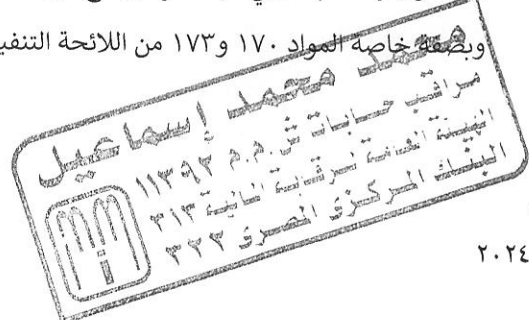 وبصفة خاصة المواد ١٧٠ و١٧٣ من اللائحة
محمد محمد إسماعيل
مراقب حسابات س.م.م ١١٣٩٢
الهيئة العامة للرقابة المالية ٣١٣
البنك المركزى المصرى ٣٢٢
٢٠٢٤